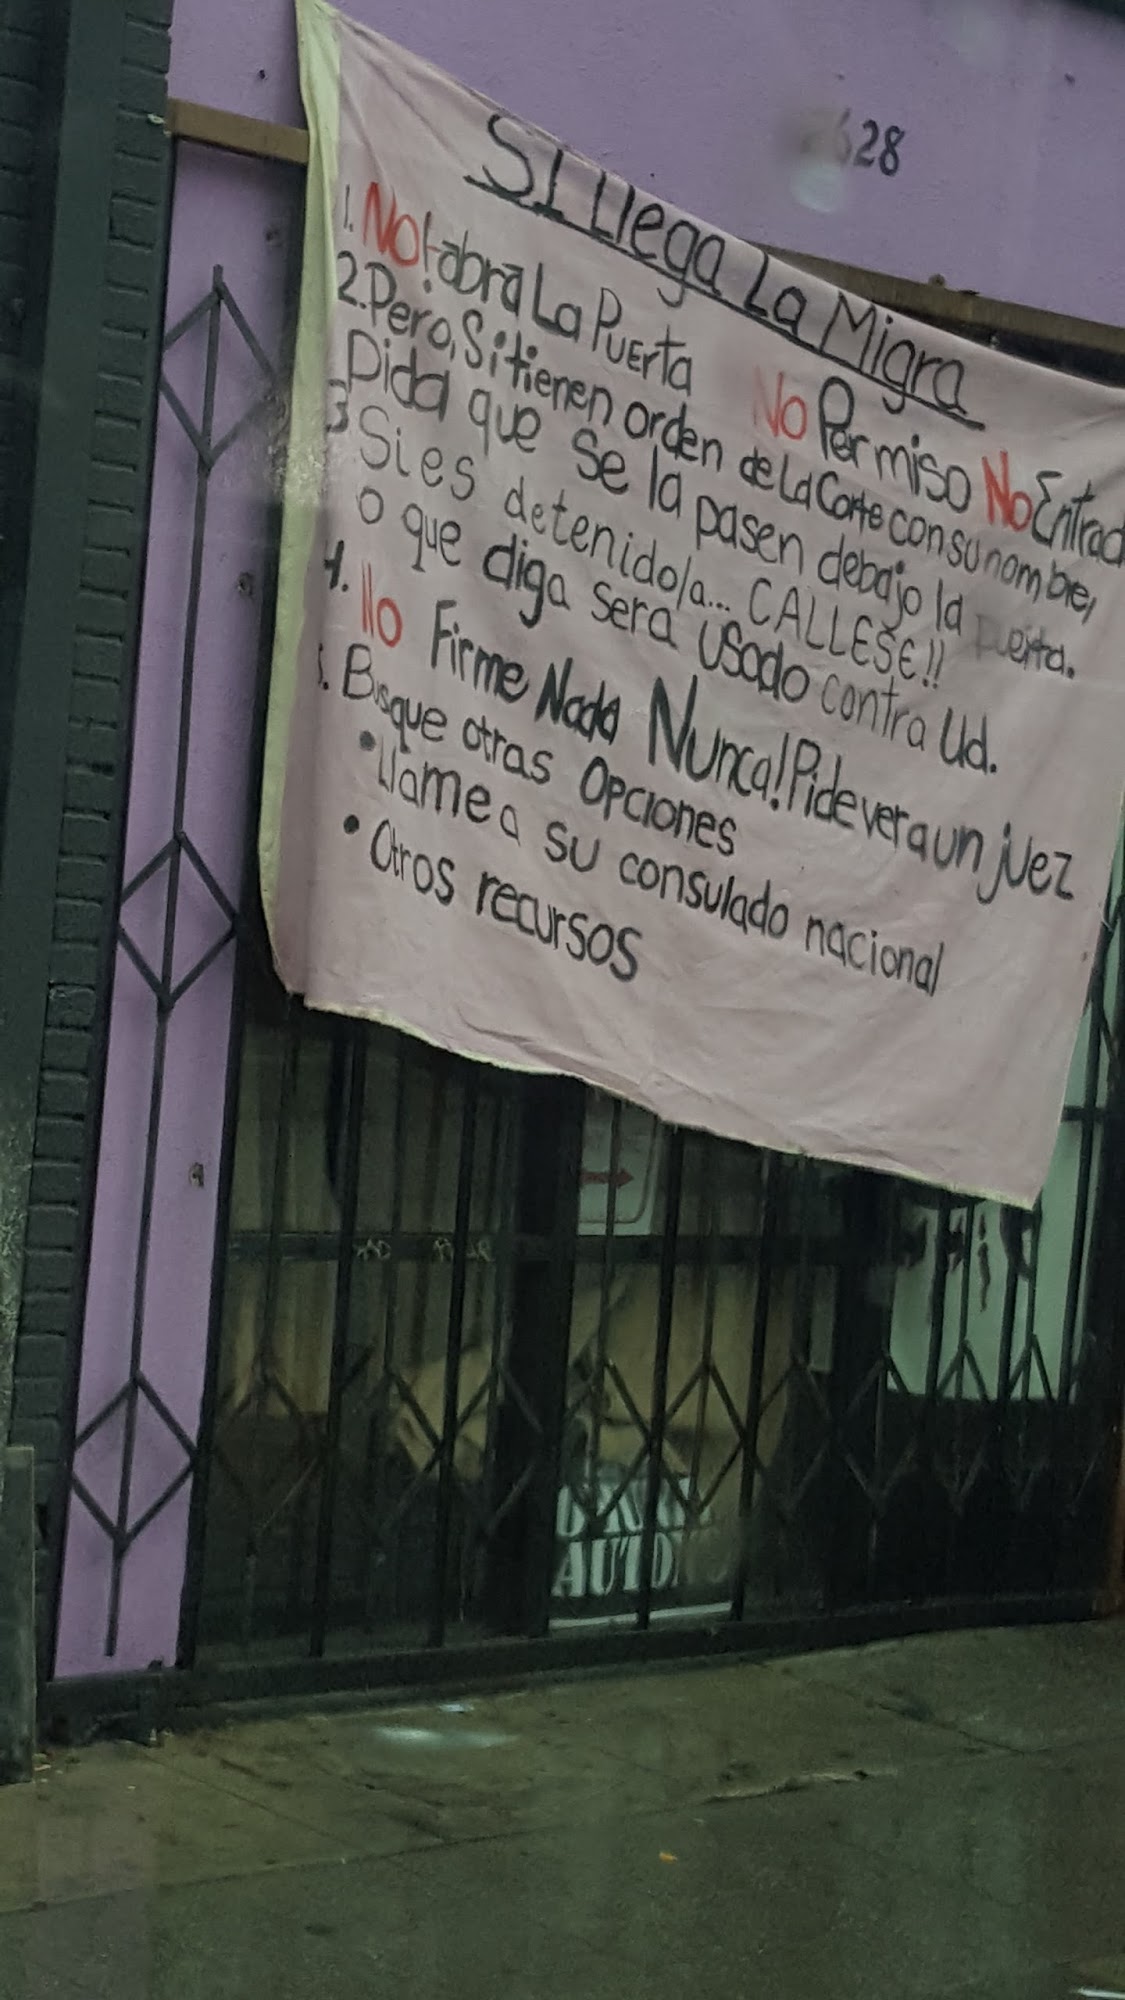 628
SI Llega La Migra
1. NO! abra La Puerta NO Permiso NO Entrad
2. Pero, Si tienen orden de La Corte con su nombre,
Pida que se la pasen debajo la puerta.
3 Si es detenido/a... CALLESE!!
o que diga sera usado contra Ud.
4. No Firme Nada Nunca! Pide ver a un juez
5. Busque otras Opciones
• Llame a su consulado nacional
• Otros recursos